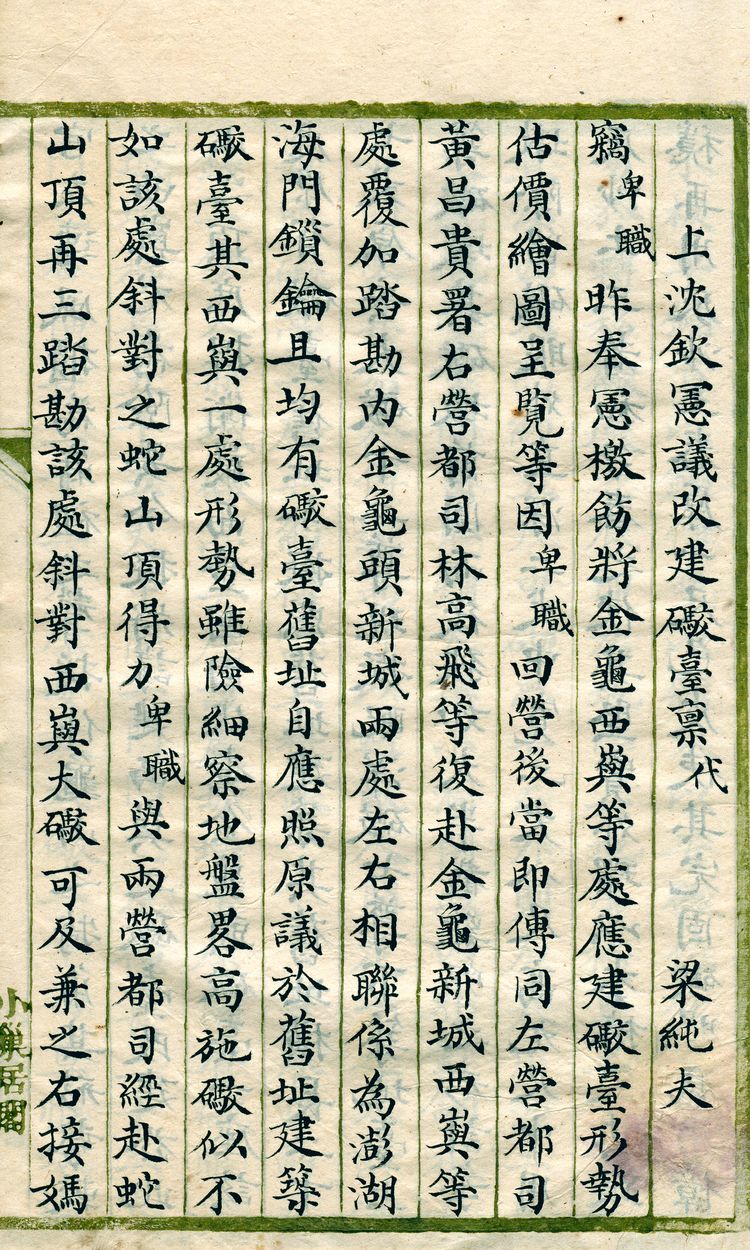 上沈欽憲議改建礮臺禀代 梁純夫
竊卑職昨奉憲檄飭將金龜西嶼等處應建礮臺形勢
估價繪圖呈覽等因卑職回營後當即傳同左營都司
黃昌貴署右營都司林高飛等復赴金龜新城西嶼等
處覆加踏勘內金龜頭新城兩處左右相聯係為澎湖
海門鎖鑰且均有礮臺舊址自應照原議於舊址建築
礮臺其西嶼一處形勢雖險細察地盤畧高施礮似不
如該處斜對之蛇山頂得力卑職與兩營都司經赴蛇
山頂再三踏勘該處斜對西嶼大礮可及兼之右接媽
小巢居閣